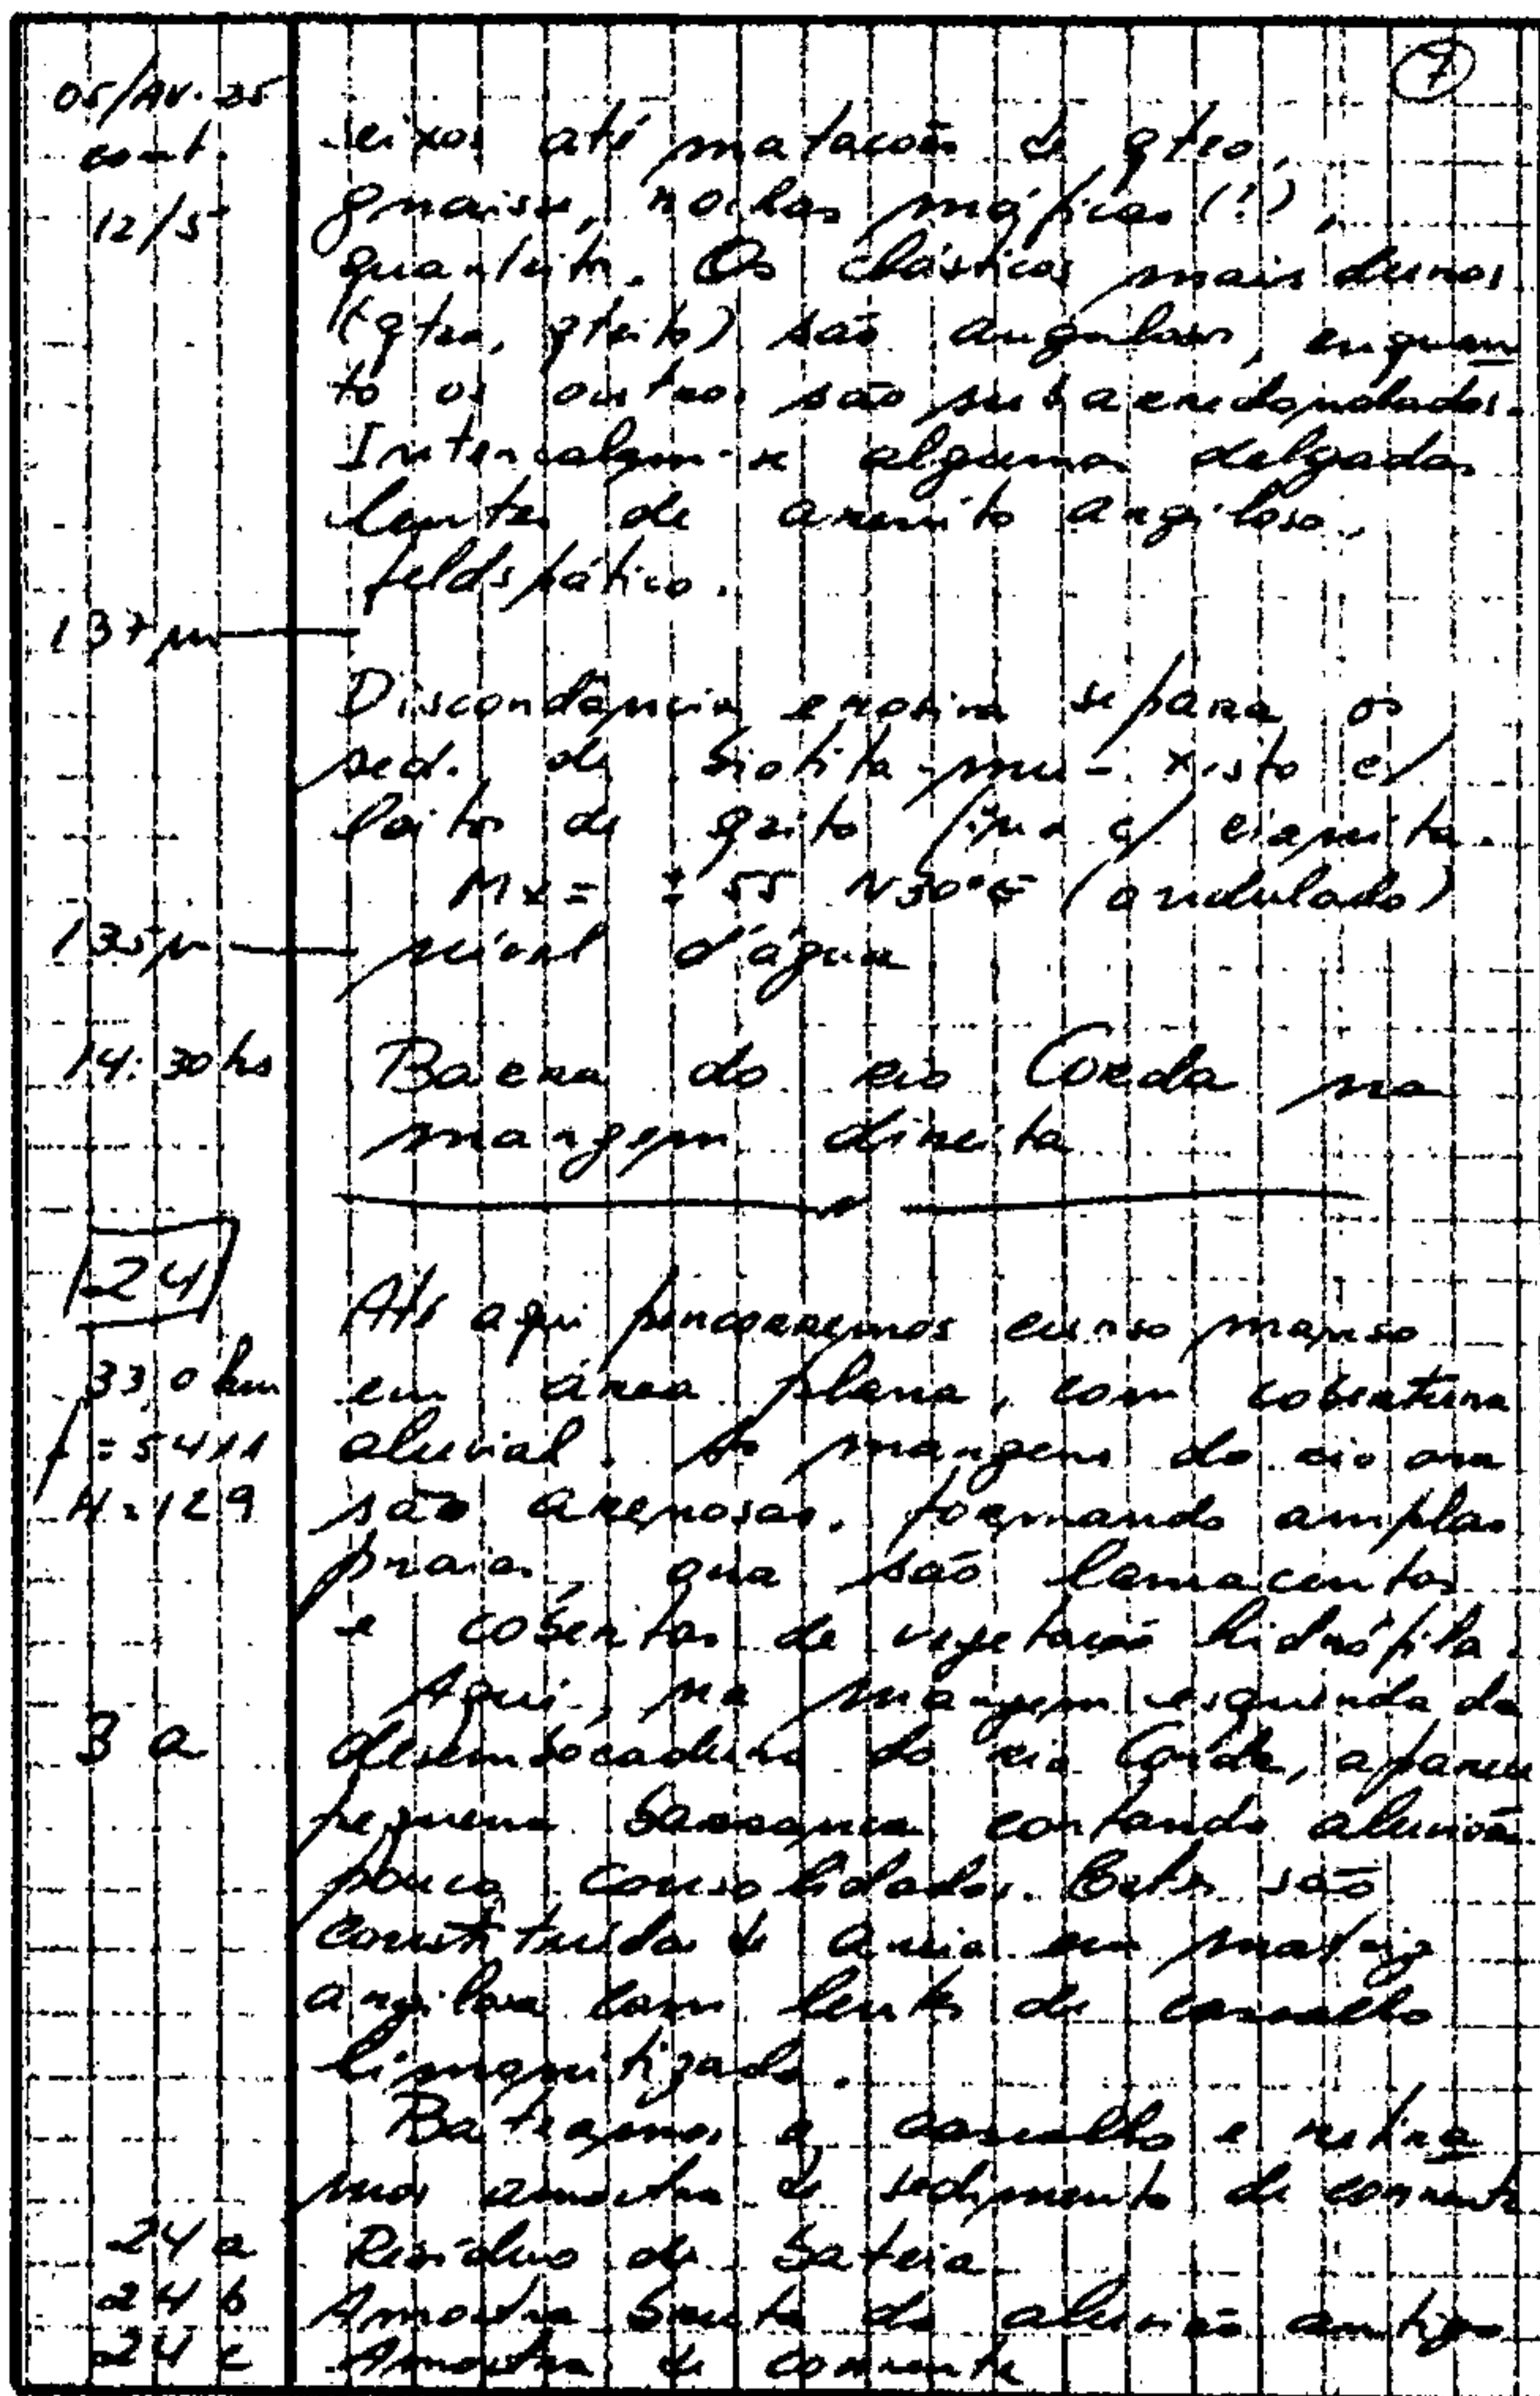 7
05/AV. 25
cont.
12/5
seixos até matacões de qtzo,
gnaisse, rochas máficas (?),
quartzito. Os clásticos mais duros
(qtzo, qtzito) são angulosos, enquan
to os outros são subarredondados.
Intercalam-se algumas delgadas
lentes de arenito argiloso,
feldspático.
137 m
Discordância erosiva separa os
sed. de biotita-mu- xisto c/
leitos de qzito fino c/ cianita.
Mx = ± 55 N30°E (ondulado)
135 m nível d'água
14:30 hs Barra do rio Corda na
margem direita
24
Até aqui percorremos curso manso
33,0 km em área plana, com cobertura
f = 5411 aluvial. As margens do rio ora
H = 129 são arenosas, formando amplas
praias, ora são lamacentas
e cobertas de vegetação hidrófila.
Aqui, na margem esquerda da
3 a desembocadura do rio Corda, aparece
pequena barranca cortando aluviões
pouco consolidados. Estes são
constituídos de areia em matriz
argilosa com lentes de cascalho
limonitizado.
Bateamos o cascalho e retira
mos amostra de sedimento de corrente
24 a Resíduo de bateia
24 b Amostra bruta do aluvião antigo
24 c Amostra de corrente